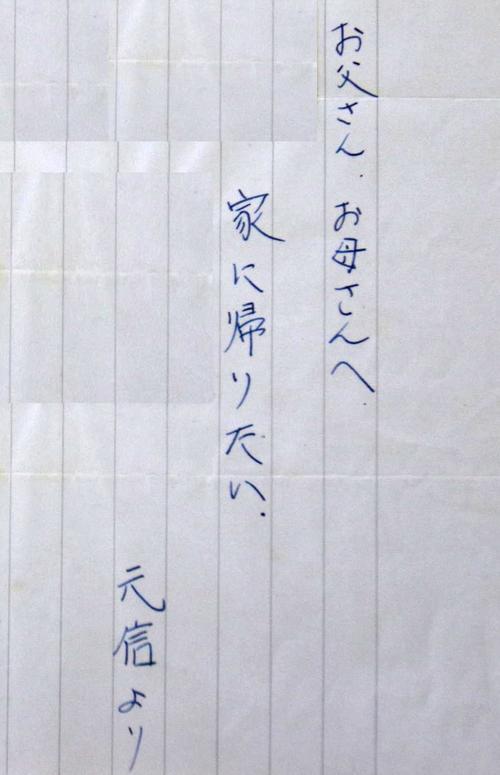 お父さん.お母さんへ.
家に帰りたい.
元信より